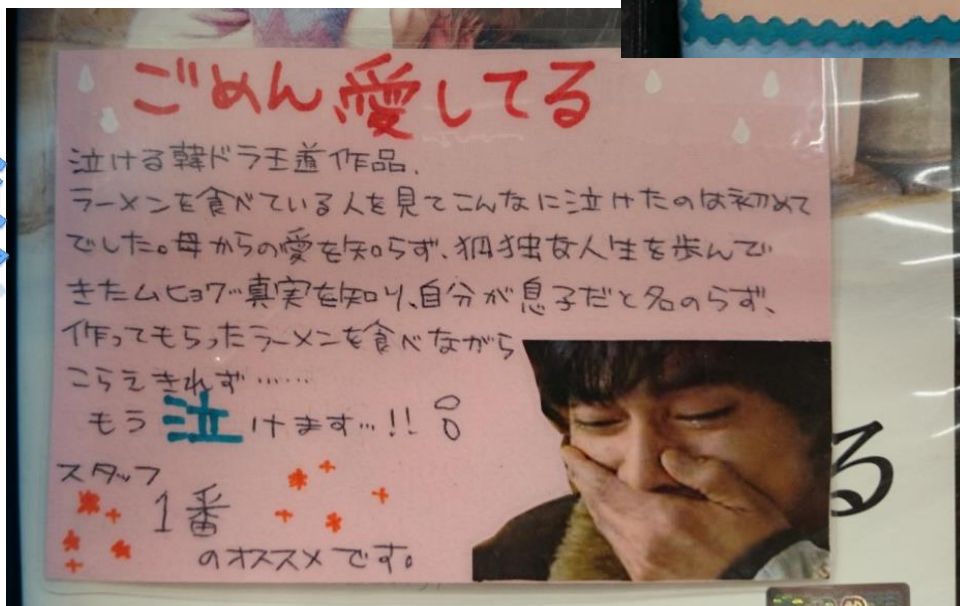 ごめん、愛してる
泣ける韓ドラ王道作品.
ラーメンを食べている人を見てこんなに泣けたのは初めて
でした。母からの愛を知らず、孤独な人生を歩んで
きたムヒョクが真実を知り、自分が息子だと名のらず、
作ってもらったラーメンを食べながら
こらえきれず……
もう泣けます…!!
スタッフ
1番
のオススメです。
る